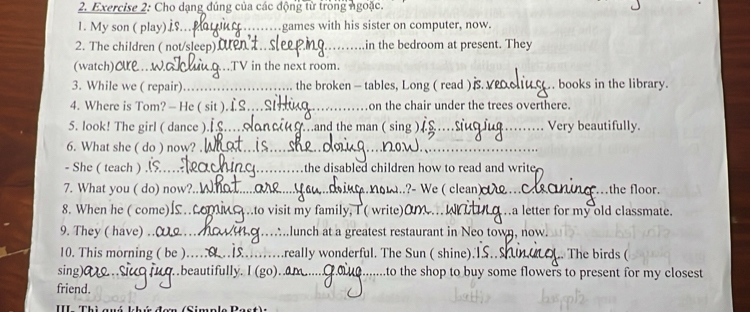 2. Exercise 2: Cho dạng đúng của các động từ trong ngoặc.
1. My son ( play) is...playing..........games with his sister on computer, now.
2. The children ( not/sleep) aren't..sleeping..........in the bedroom at present. They
(watch) are...watching...TV in the next room.
3. While we ( repair)............................ the broken – tables, Long ( read ) is.reading.. books in the library.
4. Where is Tom? – He ( sit ). is....sitting..............on the chair under the trees overthere.
5. look! The girl ( dance ).is....dancing...and the man ( sing ) is....singing.......... Very beautifully.
6. What she ( do ) now? .What..is...she..doing...now..........................
- She ( teach ) .is.....teaching............the disabled children how to read and write
7. What you ( do) now?..What.....are....you..doing.now..?- We ( clean) are...cleaning....the floor.
8. When he ( come) is...coming...to visit my family, I ( write) am...writing...a letter for my old classmate.
9. They ( have) ..are.....having.......lunch at a greatest restaurant in Neo town, now.
10. This morning ( be )......is...........really wonderful. The Sun ( shine).is..shining.. The birds (
sing) are..singing..beautifully. I (go)..am.....going.......to the shop to buy some flowers to present for my closest
friend.
III- Thì quá khứ đơn (Simple Past):